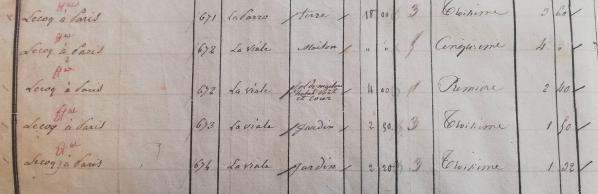 Lecoq à Paris 671 La Parro terre 18 00 3 Troisième 3 60
Lecoq à Paris 672 La viale Maison " " 5 Cinquième 4 "
Lecoq à Paris 672 La viale Sol de maison et Cour 4 00 1 Première 2 40
Lecoq à Paris 673 La viale Jardin 2 50 3 Troisième 1 50
Lecoq à Paris 674 La viale Jardin 2 20 3 Troisième 1 32